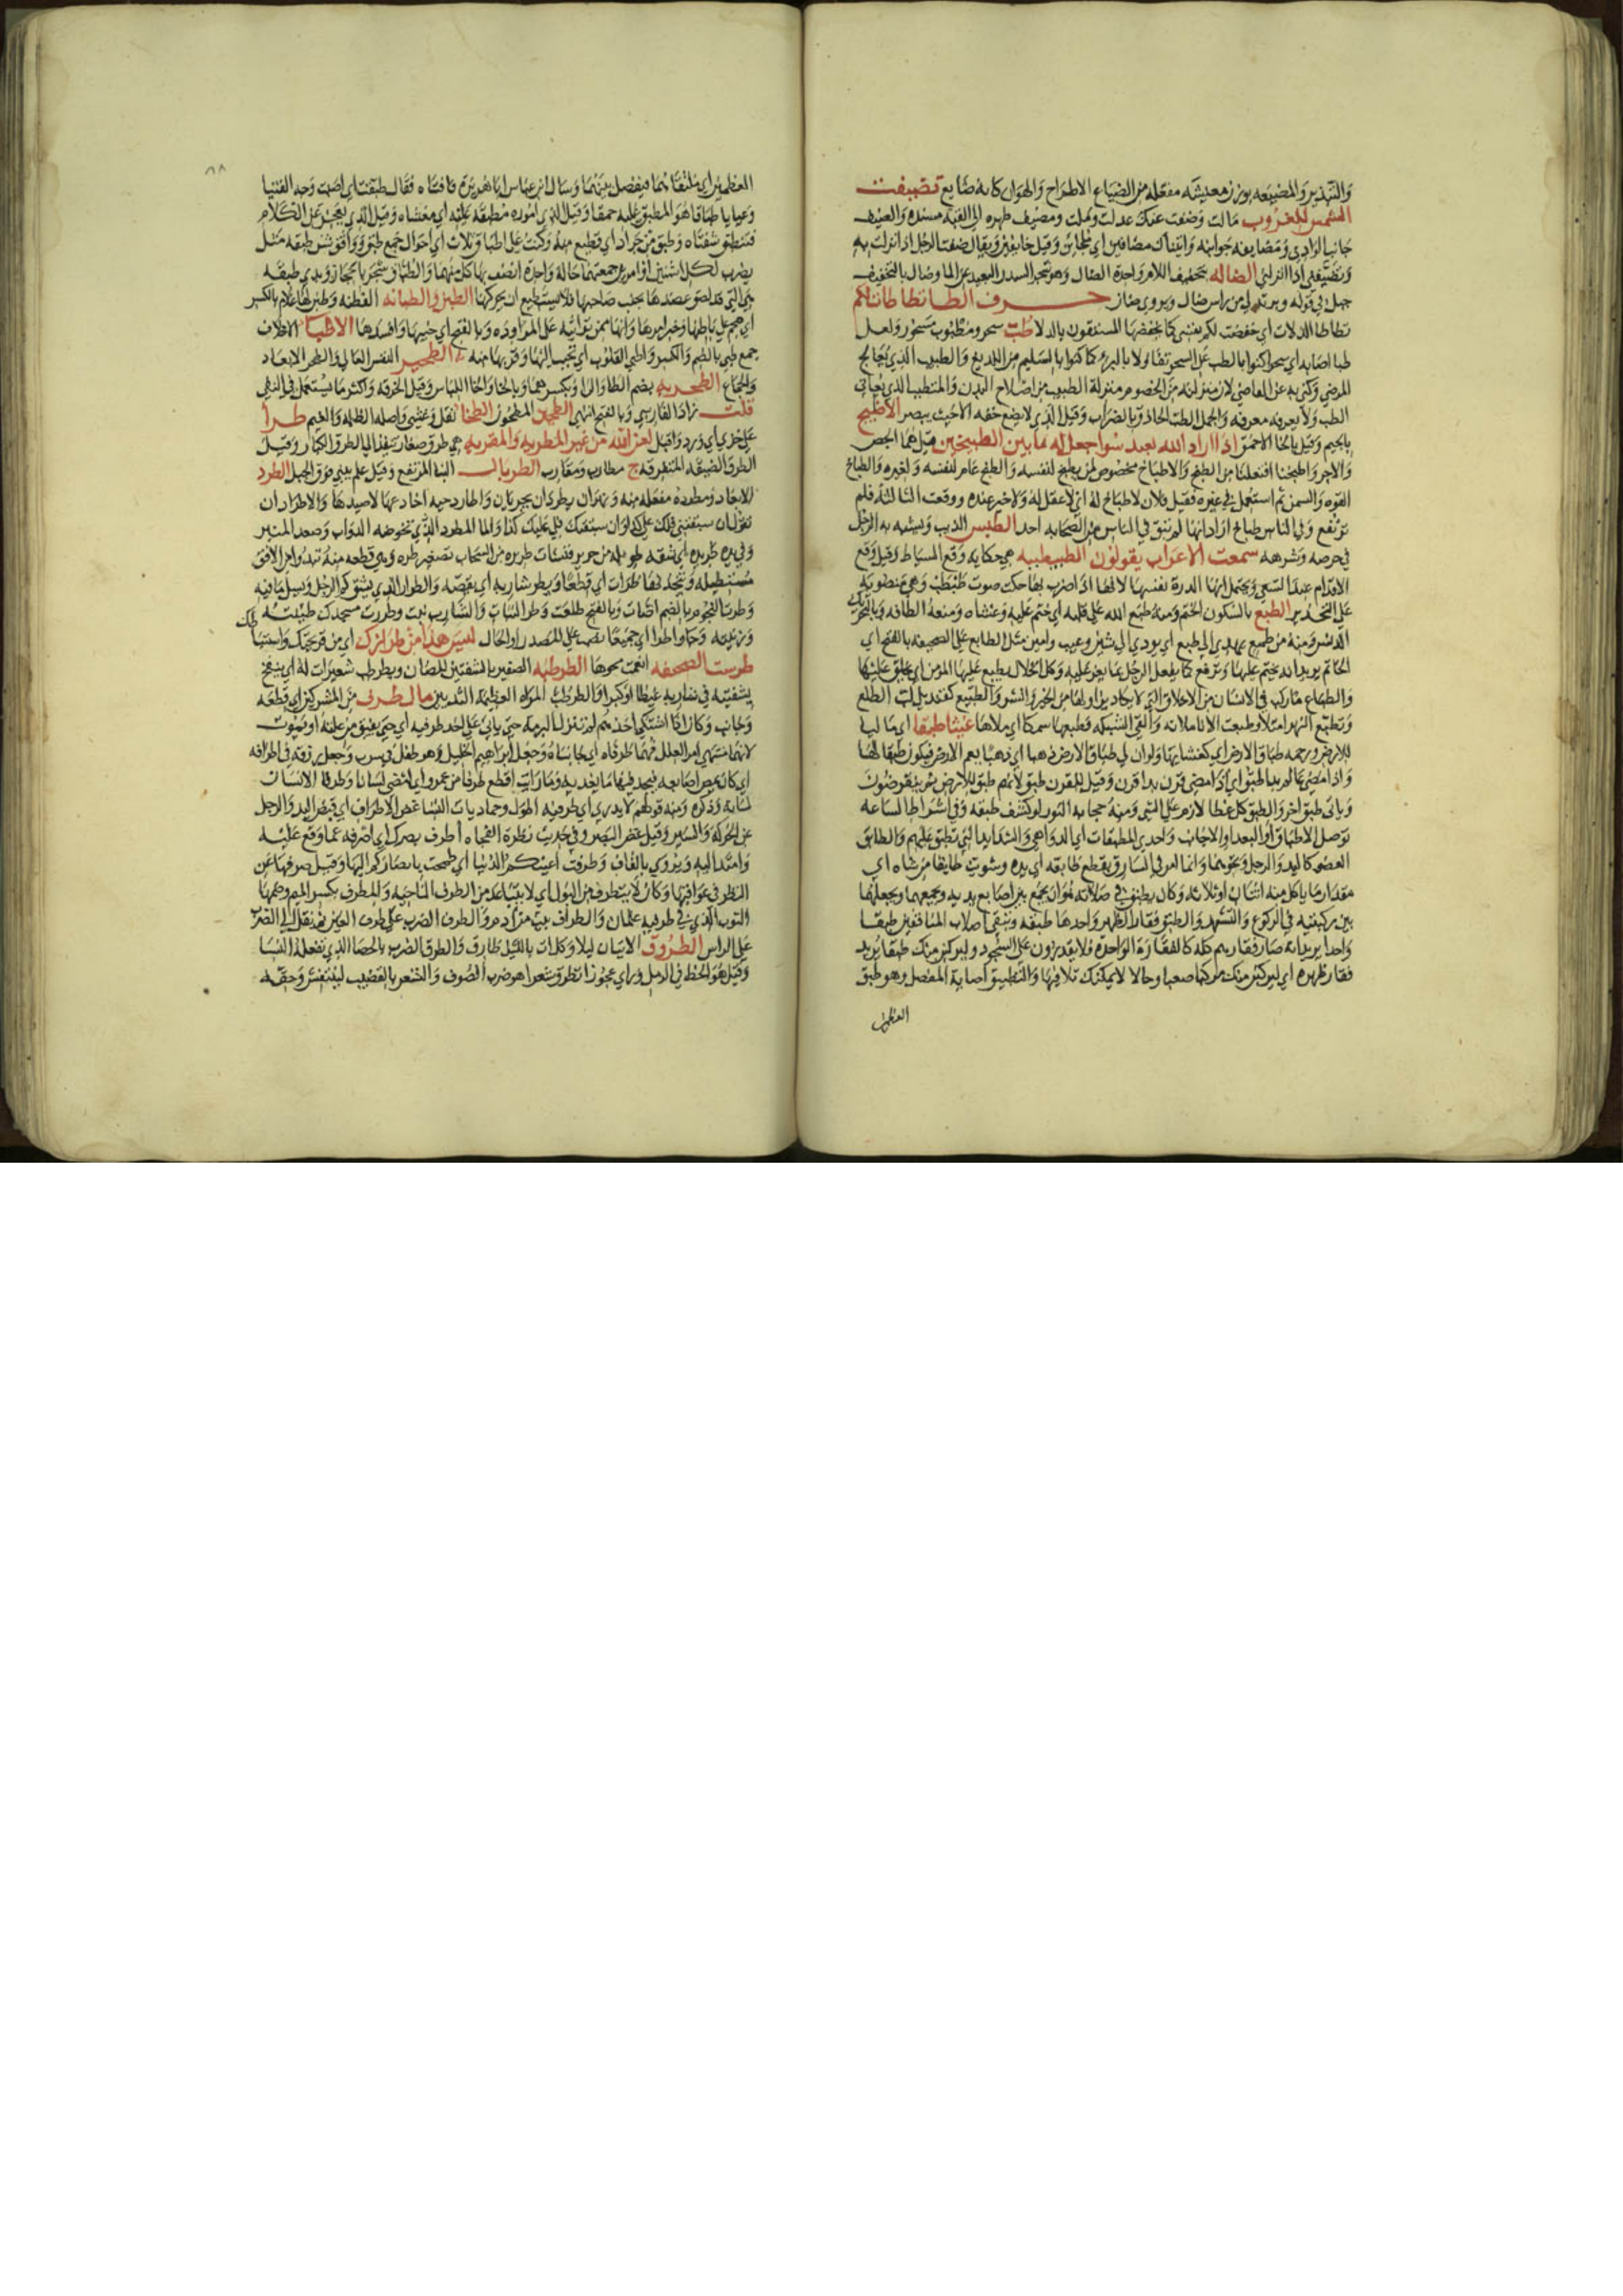 والتبذير والمضيعه بوزن معيشه مفعله من الضياع الاطراح والهوان كانه ضايع تضيفت
الشمس للغروب مالت وضفت عنك عدلت وملت ومضيف ظهره الى القبة مسنده والضيف
جانب الوادي ومضايفه جوانبه واتيناك مضافين اي ملجائين وقيل خايفين ويقال ضفت الرجل اذا نزلت به
وتضيفني اذا انزلني الضاله بتخفيف اللام واحدة الضال وهو شجر السدر البعيد عن الما وضال بالتخفيف
جبل في قوله من راس ضال ويروى ضان حرف الطا تطاطات لكم
تطاطا الدلاة اي خفضت لكم نفسي كما يخفضها المستقون بالدلا طب سحر ومطبوب مسحور ولعل
طبا اصابه اي سحرا كنوا بالطب عن السحر تفاولا بالبرء كما كنوا بالسليم من اللديغ والطبيب الذي يعالج
المرضي وكنى به عن القاضي لان منزلته من الخصوم منزلة الطبيب من اصلاح البدن والمتطبب الذي يعاني
الطب ولا يعرفه معرفه والجمل الطب الحاذق بالضراب وقيل الذي لا يضع خفه الا حيث يبصر الاطبج
بالجيم وقيل بالخا الاحمق اذا اراد الله بعبد سوا جعل ماله في الطبيخين قيل هما الجص
والاجر واطبخنا افتعلنا من الطبخ والاطباخ مخصوص لمن يطبخ لنفسه والطبخ عام لنفسه ولغيره والطباخ
القوه والسمن ثم استعمل في غيره فقيل فلان لا طباخ له اي لا عقل له ولا خير عنده ووقعت الثالثة فلم
ترتفع وفي الناس طباخ اراد انها لم تبق في الناس من الصحابه احد الطبس الذيب ويشبه به الرجل
في حرصه وشرهه سمعت الاعراب يقولون الطبطبيه هي حكايه وقع السياط وقيل وقع
الاقدام عند السعي ويحتمل انها الدرة نفسها لانها اذا ضرب بها حكت صوت طبطب وهي منصوبة
على التحذير الطبع بالسكون الختم ومنه طبع الله على قلبه اي ختم عليه وغشاه ومنعه الطافه وبالتحريك
الدنس ومنه من طمع يهدي الى طبع اي يودي الى شين وعيب وامين مثل الطابع على الصحيفه بالفتح اي
الخاتم يريد انه يختم عليها وترفع كما يفعل الرجل بما يعز عليه وكل الخلال يطبع عليها المومن اي يخلق عليها
والطباع ما ركب في الانسان من الاخلاق التي لا يكاد يزاولها من الخير والشر والطبيع كقنديل لب الطلع
وتطبع النهر امتلا وطبعت الانا ملاته والقى الشبكه فطبعها سمكا اي ملاها غيثا طبقا اي ماليا
للارض ورحمه طباق الارض اي كغشايها ولو ان لي طباق الارض ذهبا اي ذهبا يعم الارض فيكون طبقا لها
واذا مضى عالم بدا طبق اي اذا مضى قرن بدا قرن وقيل للقرن طبق لانهم طبق للارض ثم ينقرضون
وياتى طبق اخر والطبق كل غطا لازم على الشي ومنه حجابه النور لو كشف طبقه وفي اشراط الساعه
توصل الاطباق اي البعدا والاجانب واحدى المطبقات اي الدواهي والشدايد التي تطبق عليهم والطابق
العضو كاليد والرجل ونحوهما وانما امر في السارق بقطع طابقه اي يده وشويت طابقا من شاه اي
مقدار ما ياكل منه اثنان او ثلاثه وكان يطبق في صلاته هو ان يجمع بين اصابع يديه ويجعلهما
بين ركبتيه في الركوع والتشهد والطبق فقار الظهر واحدها طبقه وتبقى اصلاب المنافقين طبقا
واحدا يريد انه صار فقارهم كله كالفقارة الواحدة فلا يقدرون على السجود وليركبن منك طبقا يريد
فقار ظهره اي ليركبن منك مركبا صعبا وحالا لا يمكنك تلافيها والتطبيق اصابة المفصل وهو طبق
العظمين
٦٨
العظمين اي ملتقاهما فيفصل بينهما وسال ابن عباس ابا هريرة فافتاه فقال طبقت اي اصبت وجه الفتيا
وعيايا طباقا هو المطبق عليه حمقا وقيل الذي اموره مطبقه عليه اي مغشاه وقيل الذي يعجز عن الكلام
فتنطبق شفتاه وطبق من جراد اي قطيع منه وكنت على اطباق ثلاث اي احوال جمع طبق ووافق شن طبقه مثل
يضرب لكل اثنين او امرين جمعتهما حالة واحدة اتصف بها كل منهما والطباق شجر بالحجاز ويدي طبقه
هي التي قد لصق عضدها بجنب صاحبها فلا يستطيع ان يحركها الطبن والطبانه الفطنه وطبن لها غلام بالكسر
اي هجم على باطنها وخبر امرها وانها ممن تواتيه على المراوده وبالفتح اي خيبها وافسدها الاطبا الاخلاف
جمع طبي بالضم والكسر واطبى القلوب اي تحبب اليها وقربها منه ط الطحير النفس العالي والطحر الابعاد
والجماع الطحربه بضم الطا والرا وبكسرهما وبالحا والخا اللباس وقيل الخرقه واكثر ما يستعمل في النفي
قلت زاد الفارسي وبالفتح انتهى الطحن المطحون الطخا ثقل وغشي واصله الظلمه والغيم طرا
على حزبي اي ورد واقبل لعن الله من غير المطربه والمقربه هي طرق صغار تنفذ الى الطرق الكبار وقيل
الطرق الضيقه المتفرقه ج مطارب ومقارب الطربال البنا المرتفع وقيل علم يبنى فوق الجبل الطرد
الابعاد ومطردة مفعله منه ونهران يطردان يجريان واطارد حيه اخادعها لاصيدها والاطراد ان
تقول ان سبقتني فلك علي كذا وان سبقتك فلي عليك كذا والما المطرد الذي تخوضه الدواب وصعد المنبر
وفي يده طريدة اي شقه طويله من حرير فنشات طريره من السحاب تصغير طره وهي قطعه منه تبدو من الافق
مستطيله وتتخذنها طرات اي قطعا ويطر شاربه اي يقصه والطرار الذي يشق كم الرجل ويسل ما فيه
وطرت النجوم بالضم اضات وبالفتح طلعت وطر النبات والشارب نبت وطررت مسجدك طينته
وزينته وجاوا طرا اي جميعا نصب على المصدر او الحال ليس هذا من طرازك اي من قريحتك واستنباطك
طرست الصحيفه انعمت محوها الطرطبه الصفير بالشفتين للضان ويطرطب شعيرات له اي ينفخ
بشفتيه في شاربه غيظا او كبرا والطرطب المراه العظيمة الثديين مال طرف من المشركين اي قطعه
وجانب وكان اذا اشتكى احدهم لم تنزل البرمه حتى ياتي على احد طرفيه اي حتى يفيق من علته او يموت
لانهما منتهى امر العليل فهما طرفاه اي جانباه وجعل ابراهيم الخليل وهو طفل في سرب وجعل رزقه في اطرافه
اي كان يمص اصابعه فيجد فيها ما يغذيه وما رايت اقطع طرفا من عمرو اي امضى لسانا وطرفا الانسان
لسانه وذكره ومنه قولهم لا يدري اي طرفيه اطول وحماديات النسا غض الاطراف اي قبض اليد والرجل
عن الحركه والسير وقيل غض البصر وفي حديث نظرة الفجاه اطرف بصرك اي اصرفه عما وقع عليه
وامتد اليه ويروى بالقاف وطرفت اعينكم الدنيا اي طمحت بابصاركم اليها وقيل صرفها عن
النظر في عواقبها وكان لا يتطرف من البول اي لا يتباعد من الطرف الناحيه والمطرف بكسر الميم وضمها
الثوب الذي في طرفيه علمان والطراف بيت من ادم والطرف الضرب على طرف العين ثم نقل الى الضرب
على الراس الطروق الاتيان ليلا وكل ات بالليل طارق والطرق الضرب بالحصا الذي تفعله النسا
وقيل هو الخط في الرمل وراى عجوزا تطرق شعرا هو ضرب الصوف والشعر بالقضيب لينتفش وحقه